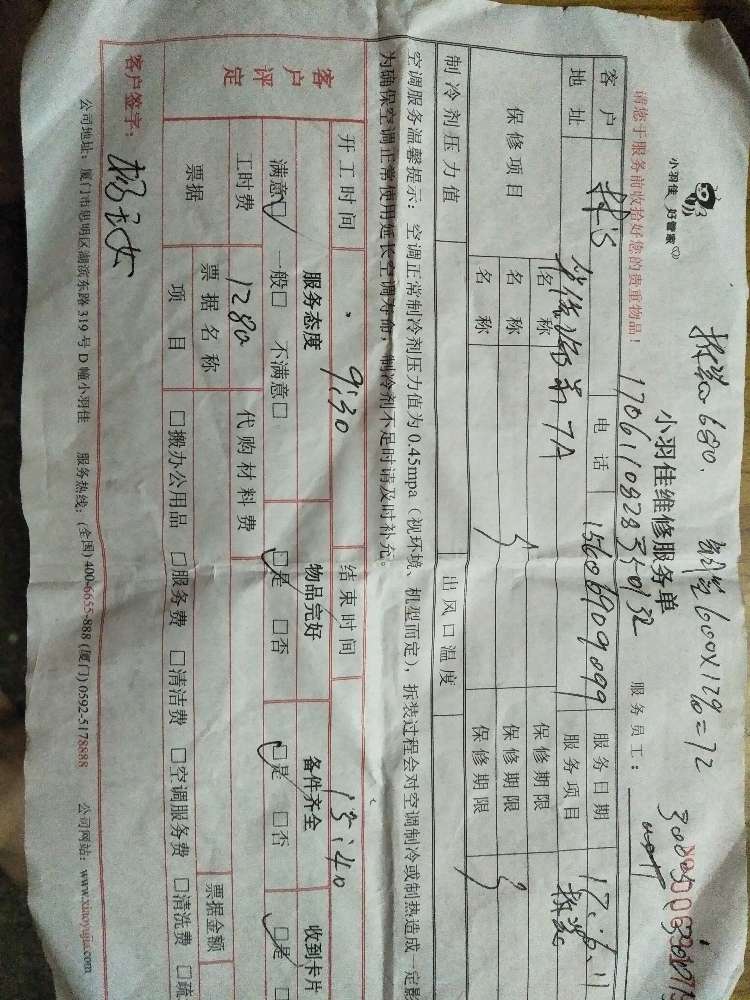 小羽佳 好管家
拆装680.
请您于服务前收拾好您的贵重物品!
小羽佳维修服务单
服务员工:
客户
电话
15606909099
服务日期
17.6.11
地址
7A
服务项目
拆装
保修项目
名称
保修期限
名称
保修期限
名称
保修期限
制冷剂压力值
出风口温度
空调服务温馨提示: 空调正常制冷剂压力值为0.45mpa(视环境、机型而定), 拆装过程会对空调制冷或制热造成一定影
为确保空调正常使用延长空调寿命, 制冷剂不足时请及时补充。
开工时间
9:30
结束时间
13:40
客户评定
服务态度
物品完好
备件齐全
收到卡片
满意□ 一般□ 不满意□
□是 □否
□是 □否
□是 □
工时费
1280
代购材料费
票据
票据名称
票据金额
项目
□搬办公用品 □服务费 □清洁费 □空调服务费 □清洗费 □疏
客户签字:
公司地址: 厦门市思明区湖滨东路319号D幢小羽佳 服务热线: (全国) 400-6655-888 (厦门) 0592-5178888 公司网站: www.xiaoyujia.com